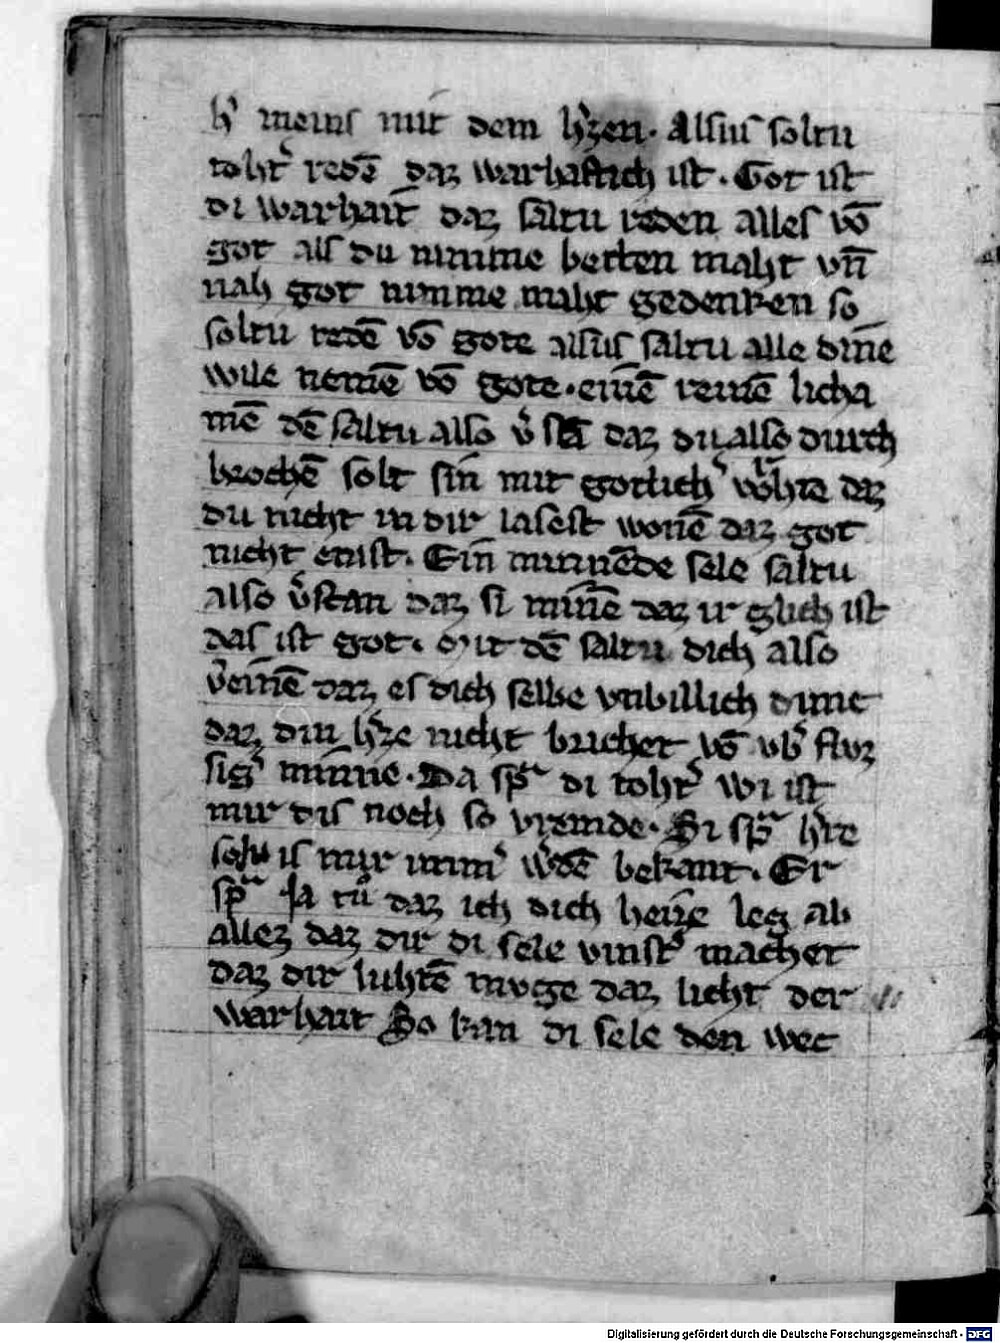 h᷈ meins mit dem h᷈zen. Alsus soltu
toht᷈ redē daz warhaftich ist. Got ist
di warhait daz saltu reden alles vō
got als du nimme betten maht vn̄
nah got nimme maht gedenken so
soltu redē vō gote alsus saltu alle dine
wile nemē vō gote. einē reinē licha
mē dē saltu also v᷈ stā daz du also durch
brochē solt sin mit gotlich᷈ vorhte daz
du nicht in dir lasest wonē daz got
nicht enist. Ein minnēde sele saltu
also v᷈stan daz si minē daz ir glich ist
das ist got. Mit dē saltu dich also
v᷈einē daz es dich selbe vnbillich dime
daz din h᷈ze nicht brichet vō vb᷈ flvz
sig᷈ minne. Da sp᷈ᵃ di toht᷈ wi ist
mir dis noch so vremde. Si sp᷈ᵃ h᷈re
sol is mir imm᷈ w᷈dē bekant. Er
sp᷈ᵃ Ja tů daz ich dich heize leg ab
allez daz dir di sele vinst᷈ machet
daz dir luhtē mvge daz licht der
warhait So kan di sele den wec
Digitalisierung gefördert durch die Deutsche Forschungsgemeinschaft - DFG